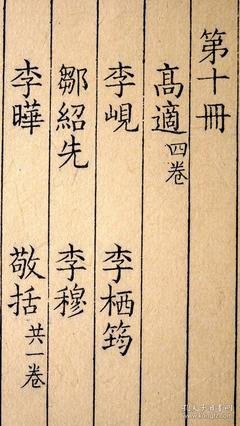 第十冊
高適四卷
李峴　李栖筠
鄒紹先　李穆
李曄　敬括共一卷